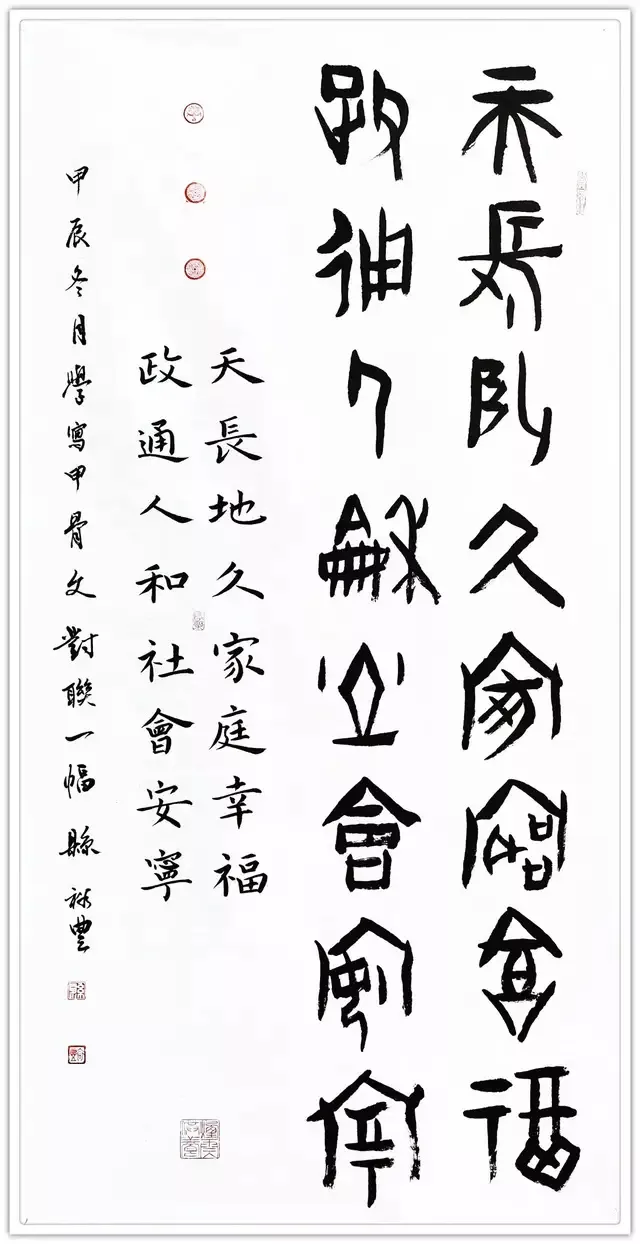 天長地久家庭幸福
政通人和社會安寧
天長地久家庭幸福
政通人和社會安寧
甲辰冬月學寫甲骨文對聯一幅